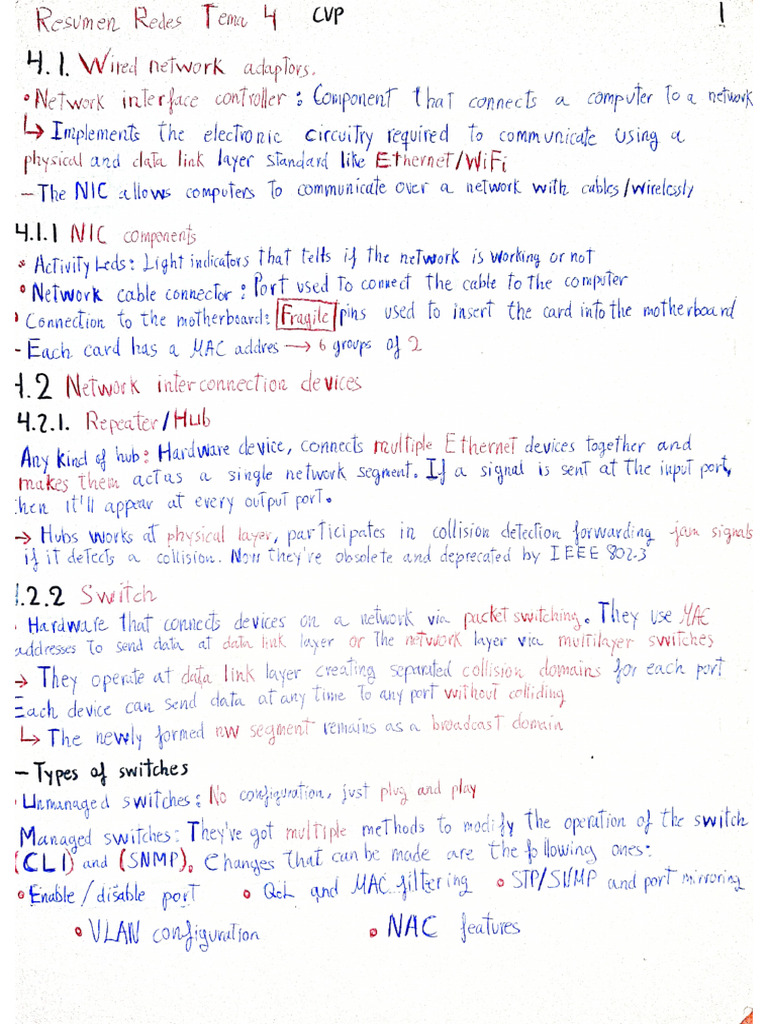 Resumen Redes Tema 4 CVP 1
4.1. Wired network adaptors.
• Network interface controller: Component that connects a computer to a network
↳ Implements the electronic circuitry required to communicate using a
physical and data link layer standard like Ethernet/WiFi
- The NIC allows computers to communicate over a network with cables/wirelessly
4.1.1 NIC components
• Activity Leds: Light indicators that tells if the network is working or not
• Network cable connector: Port used to connect the cable to the computer
• Connection to the motherboard: Fragile pins used to insert the card into the motherboard
- Each card has a MAC addres → 6 groups of 2
4.2 Network interconnection devices
4.2.1. Repeater/Hub
Any kind of hub: Hardware device, connects multiple Ethernet devices together and
makes them act as a single network segment. If a signal is sent at the input port,
then it'll appear at every output port.
→ Hubs works at physical layer, participates in collision detection forwarding jam signals
if it detects a collision. Now they're obsolete and deprecated by IEEE 802.3
4.2.2 Switch
• Hardware that connects devices on a network via packet switching. They use MAC
addresses to send data at data link layer or the network layer via multilayer switches
→ They operate at data link layer creating separated collision domains for each port
Each device can send data at any time to any port without colliding
↳ The newly formed nw segment remains as a broadcast domain
- Types of switches
• Unmanaged switches: No configuration, just plug and play
Managed switches: They've got multiple methods to modify the operation of the switch
(CLI) and (SNMP). Changes that can be made are the following ones:
• Enable/disable port • QoL and MAC filtering • STP/SNMP and port mirroring
• VLAN configuration • NAC features